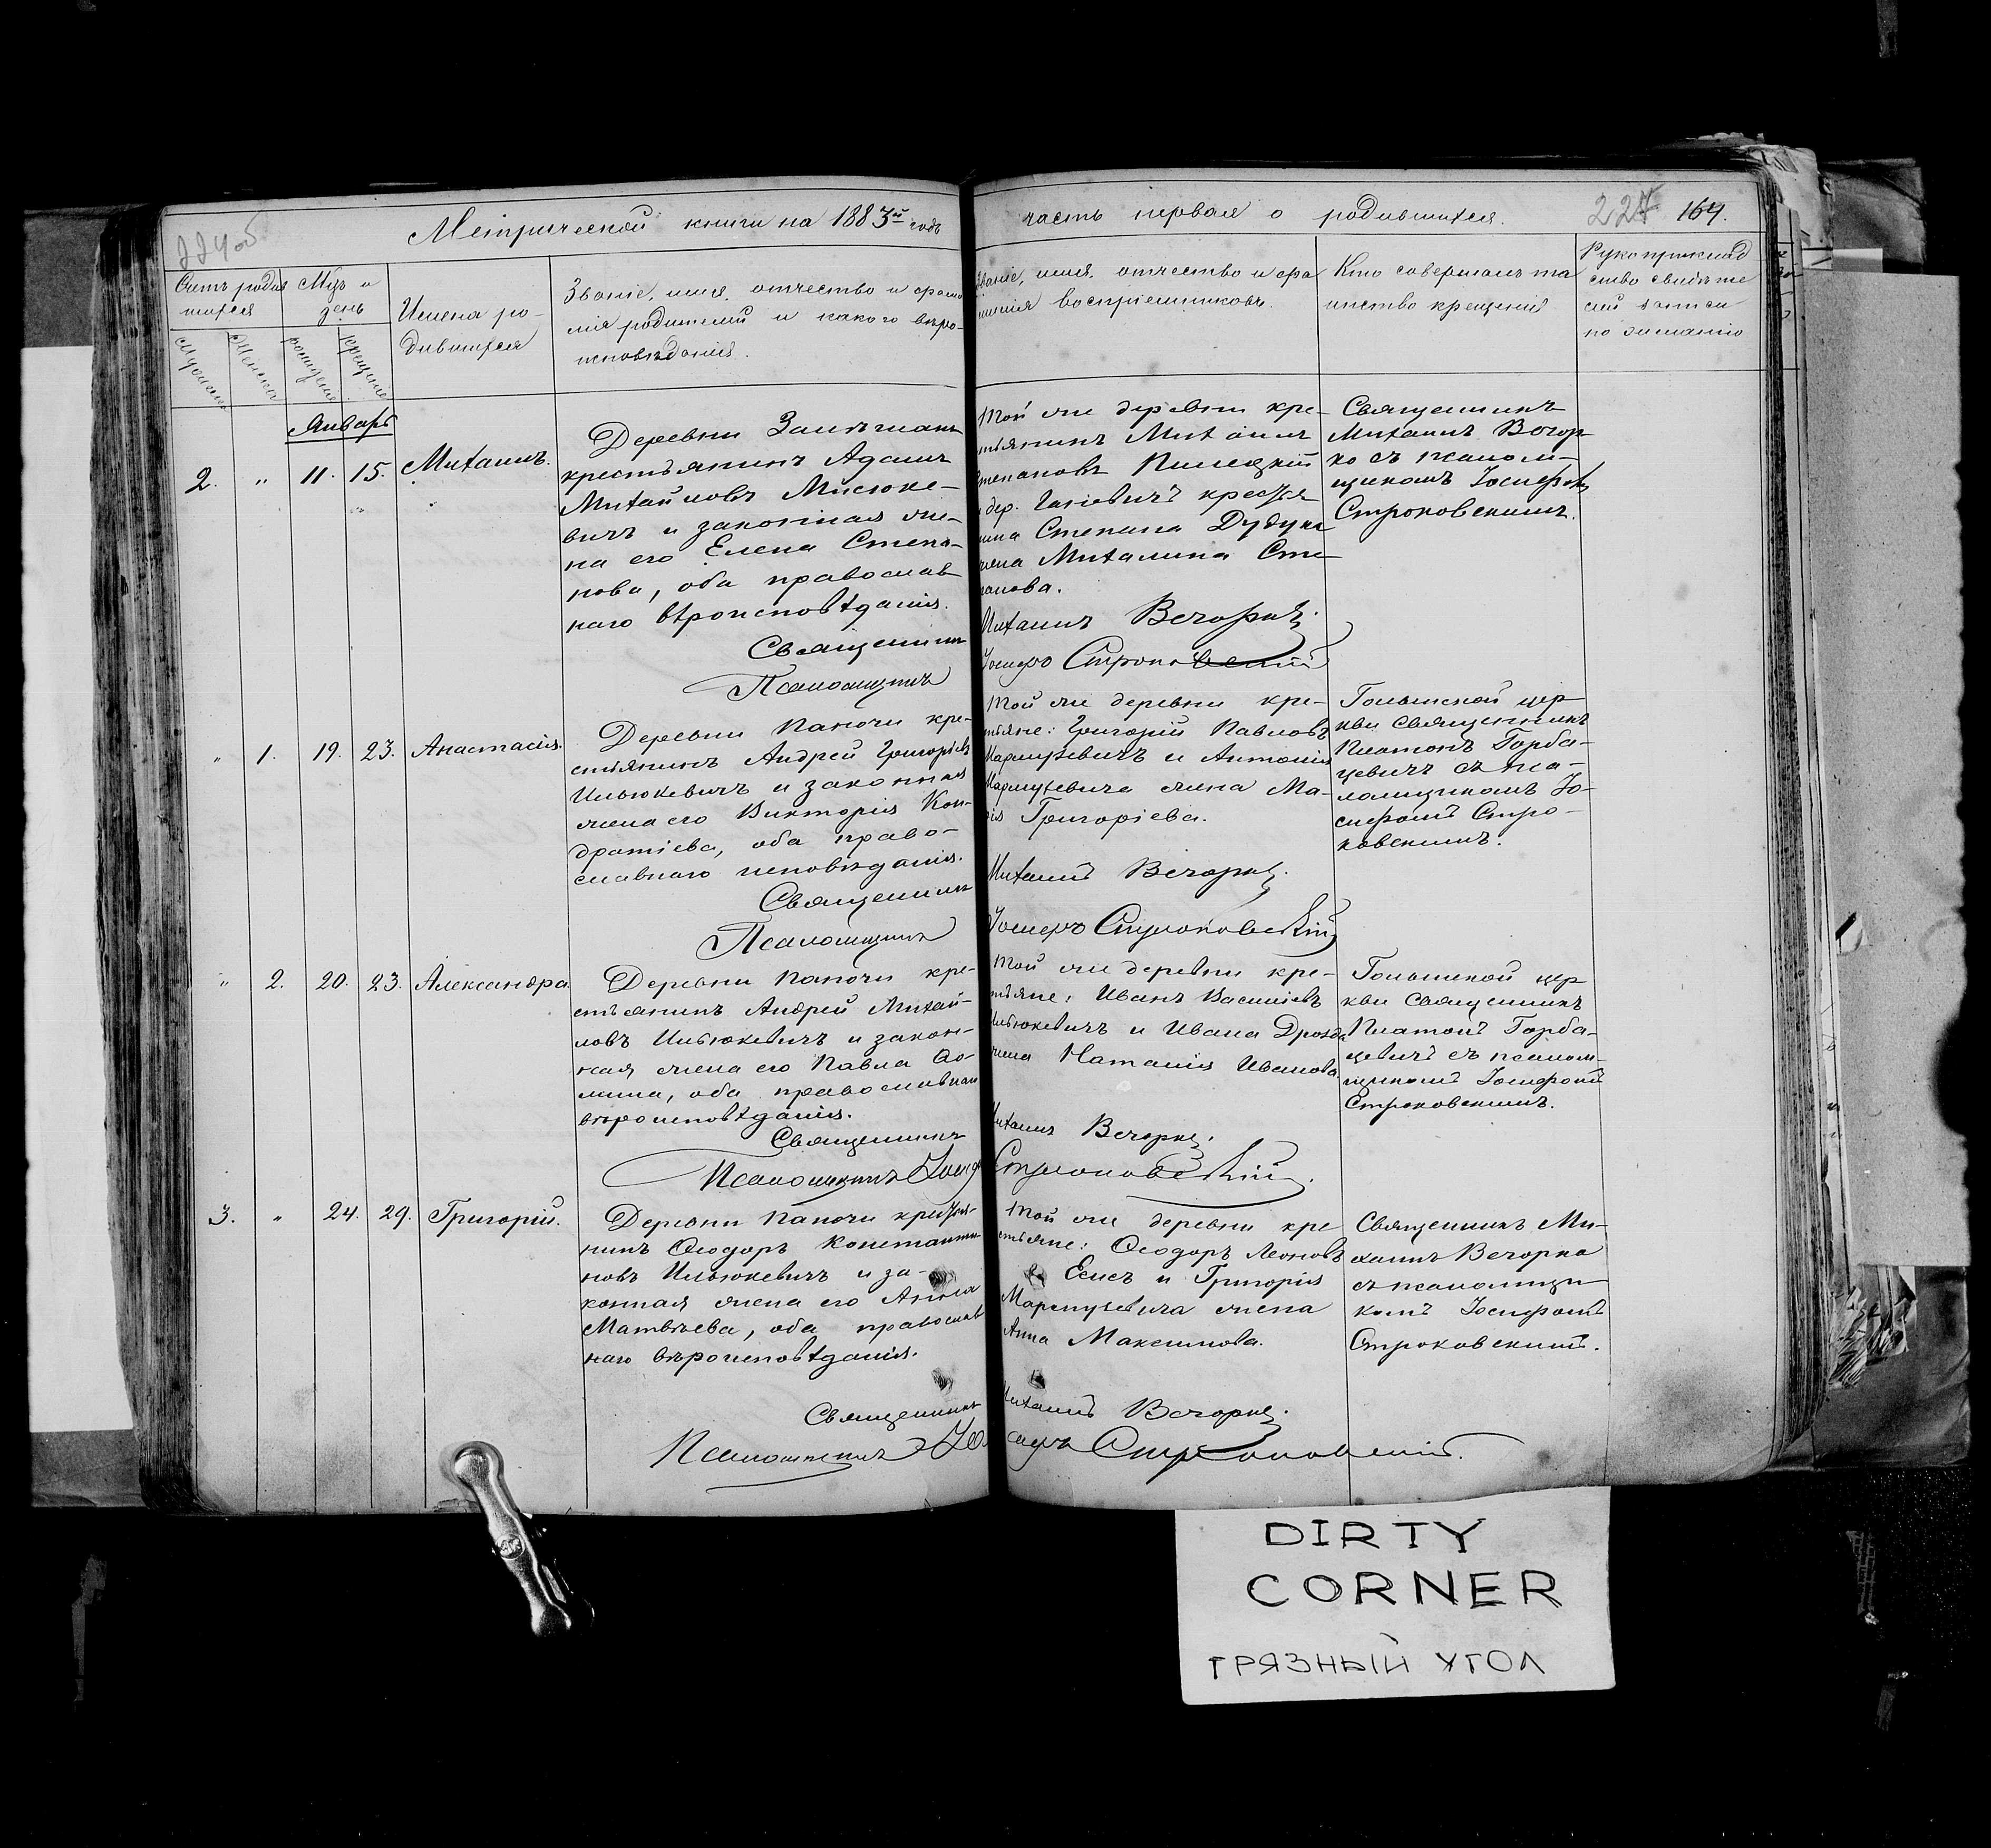 224об
Метрической книги на 1883й годъ
часть первая о родившихся.
224 164.
Счетъ родив
шихся
Мужеска
Женска
Мцъ и
день
рожденія
крещенія
Имена ро-
дившихся
Званіе, имя, отчество и фами
лія родителей и какого веро-
исповѣданія.
Званіе, имя, отчество и фа
милія воспріемниковъ.
Кто совершалъ та
инство крещенія
Рукоприклад
ство свидѣте
лей записи
по желанію
Январь
2. " 11. 15. Михаилъ.
Деревни
крестьянинъ Адамъ
Михайловъ Мисюке-
вичъ и законная же-
на его Елена Степа-
нова, оба православ
наго вѣроисповѣданія.
Священникъ
Псаломщикъ
Той же деревни кре-
стьянинъ Михаилъ
Степановъ Пилецкій
дер. крестья
нина Степана
жена Михалина Сте
панова.
Михаилъ Вечорко.
Іосифъ Строковскій
Священникъ
Михаилъ Вечор
ко съ псалом-
щикомъ Іосифомъ
Строковскимъ.
" 1. 19. 23. Анастасія.
Деревни Папочи кре-
стьянинъ Андрей Григорьевъ
Ильюкевичъ и законная
жена его Викторія Кон-
дратіева, оба право-
славнаго исповѣданія.
Священникъ
Псаломщикъ
Той же деревни кре-
стьяне: Григорій Павловъ
Мармузевичъ и Антонія
Мармузевича жена Ма-
рія Григоріева.
Михаилъ Вечорко.
Іосифъ Строковскій
Голынской цер
кви Священникъ
Платонъ Горба-
цевичъ съ пса-
ломщикомъ Іо-
сифомъ Стро-
ковскимъ.
" 2. 20. 23. Александра.
Деревни Папочи кре-
стьянинъ Андрей Михай-
ловъ Ильюкевичъ и закон-
ная жена его Павла Ѳо-
мина, оба православнаго
вѣроисповѣданія.
Священникъ
Псаломщикъ Іосифъ
Той же деревни кре-
стьяне: Иванъ Василіевъ
Ильюкевичъ и Ивана Дрозда
жена Наталія Иванова.
Михаилъ Вечорко.
Строковскій.
Голынской цер
кви Священникъ
Платонъ Горба-
цевичъ съ псалом-
щикомъ Іосифомъ
Строковскимъ.
3. " 24. 29. Григорій.
Деревни Папочи крестья-
нинъ Ѳеодоръ Константи-
новъ Ильюкевичъ и за-
конная жена его Анна
Матвѣева, оба православ
наго вѣроисповѣданія.
Священникъ
Псаломщикъ Іо
Той же деревни кре
стьяне: Ѳеодоръ Леоновъ
и Григорія
Мармузевича жена
Анна Максимова.
Михаилъ Вечорко.
сифъ Строковскій.
Священникъ Ми-
хаилъ Вечорко
съ псаломщи-
комъ Іосифомъ
Строковскимъ.
DIRTY
CORNER
ГРЯЗНЫЙ УГОЛ